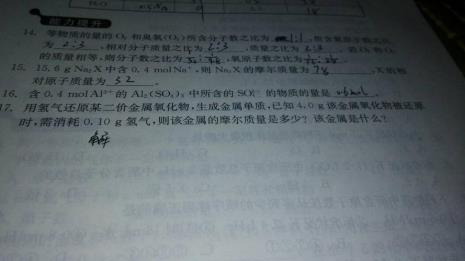 能力提升
14. 等物质的量的O₂和臭氧(O₃)所含分子数之比为 1:1 ,所含氧原子数之比
为 2:3 ,相对分子质量之比为 2:3 ,质量之比为 2:3 。若O₂和O₃
的质量相等,则分子数之比为 ,氧原子数之比为
15. 15.6 g Na₂X中含0.4 mol Na⁺,则Na₂X的摩尔质量为 ,X的相
对原子质量为 32
16. 含0.4 mol Al³⁺的Al₂(SO₄)₃中所含的SO₄²⁻的物质的量是
17. 用氢气还原某二价金属氧化物,生成金属单质,已知4.0 g该金属氧化物被还原
时,需消耗0.10 g氢气,则该金属的摩尔质量是多少?该金属是什么?
解